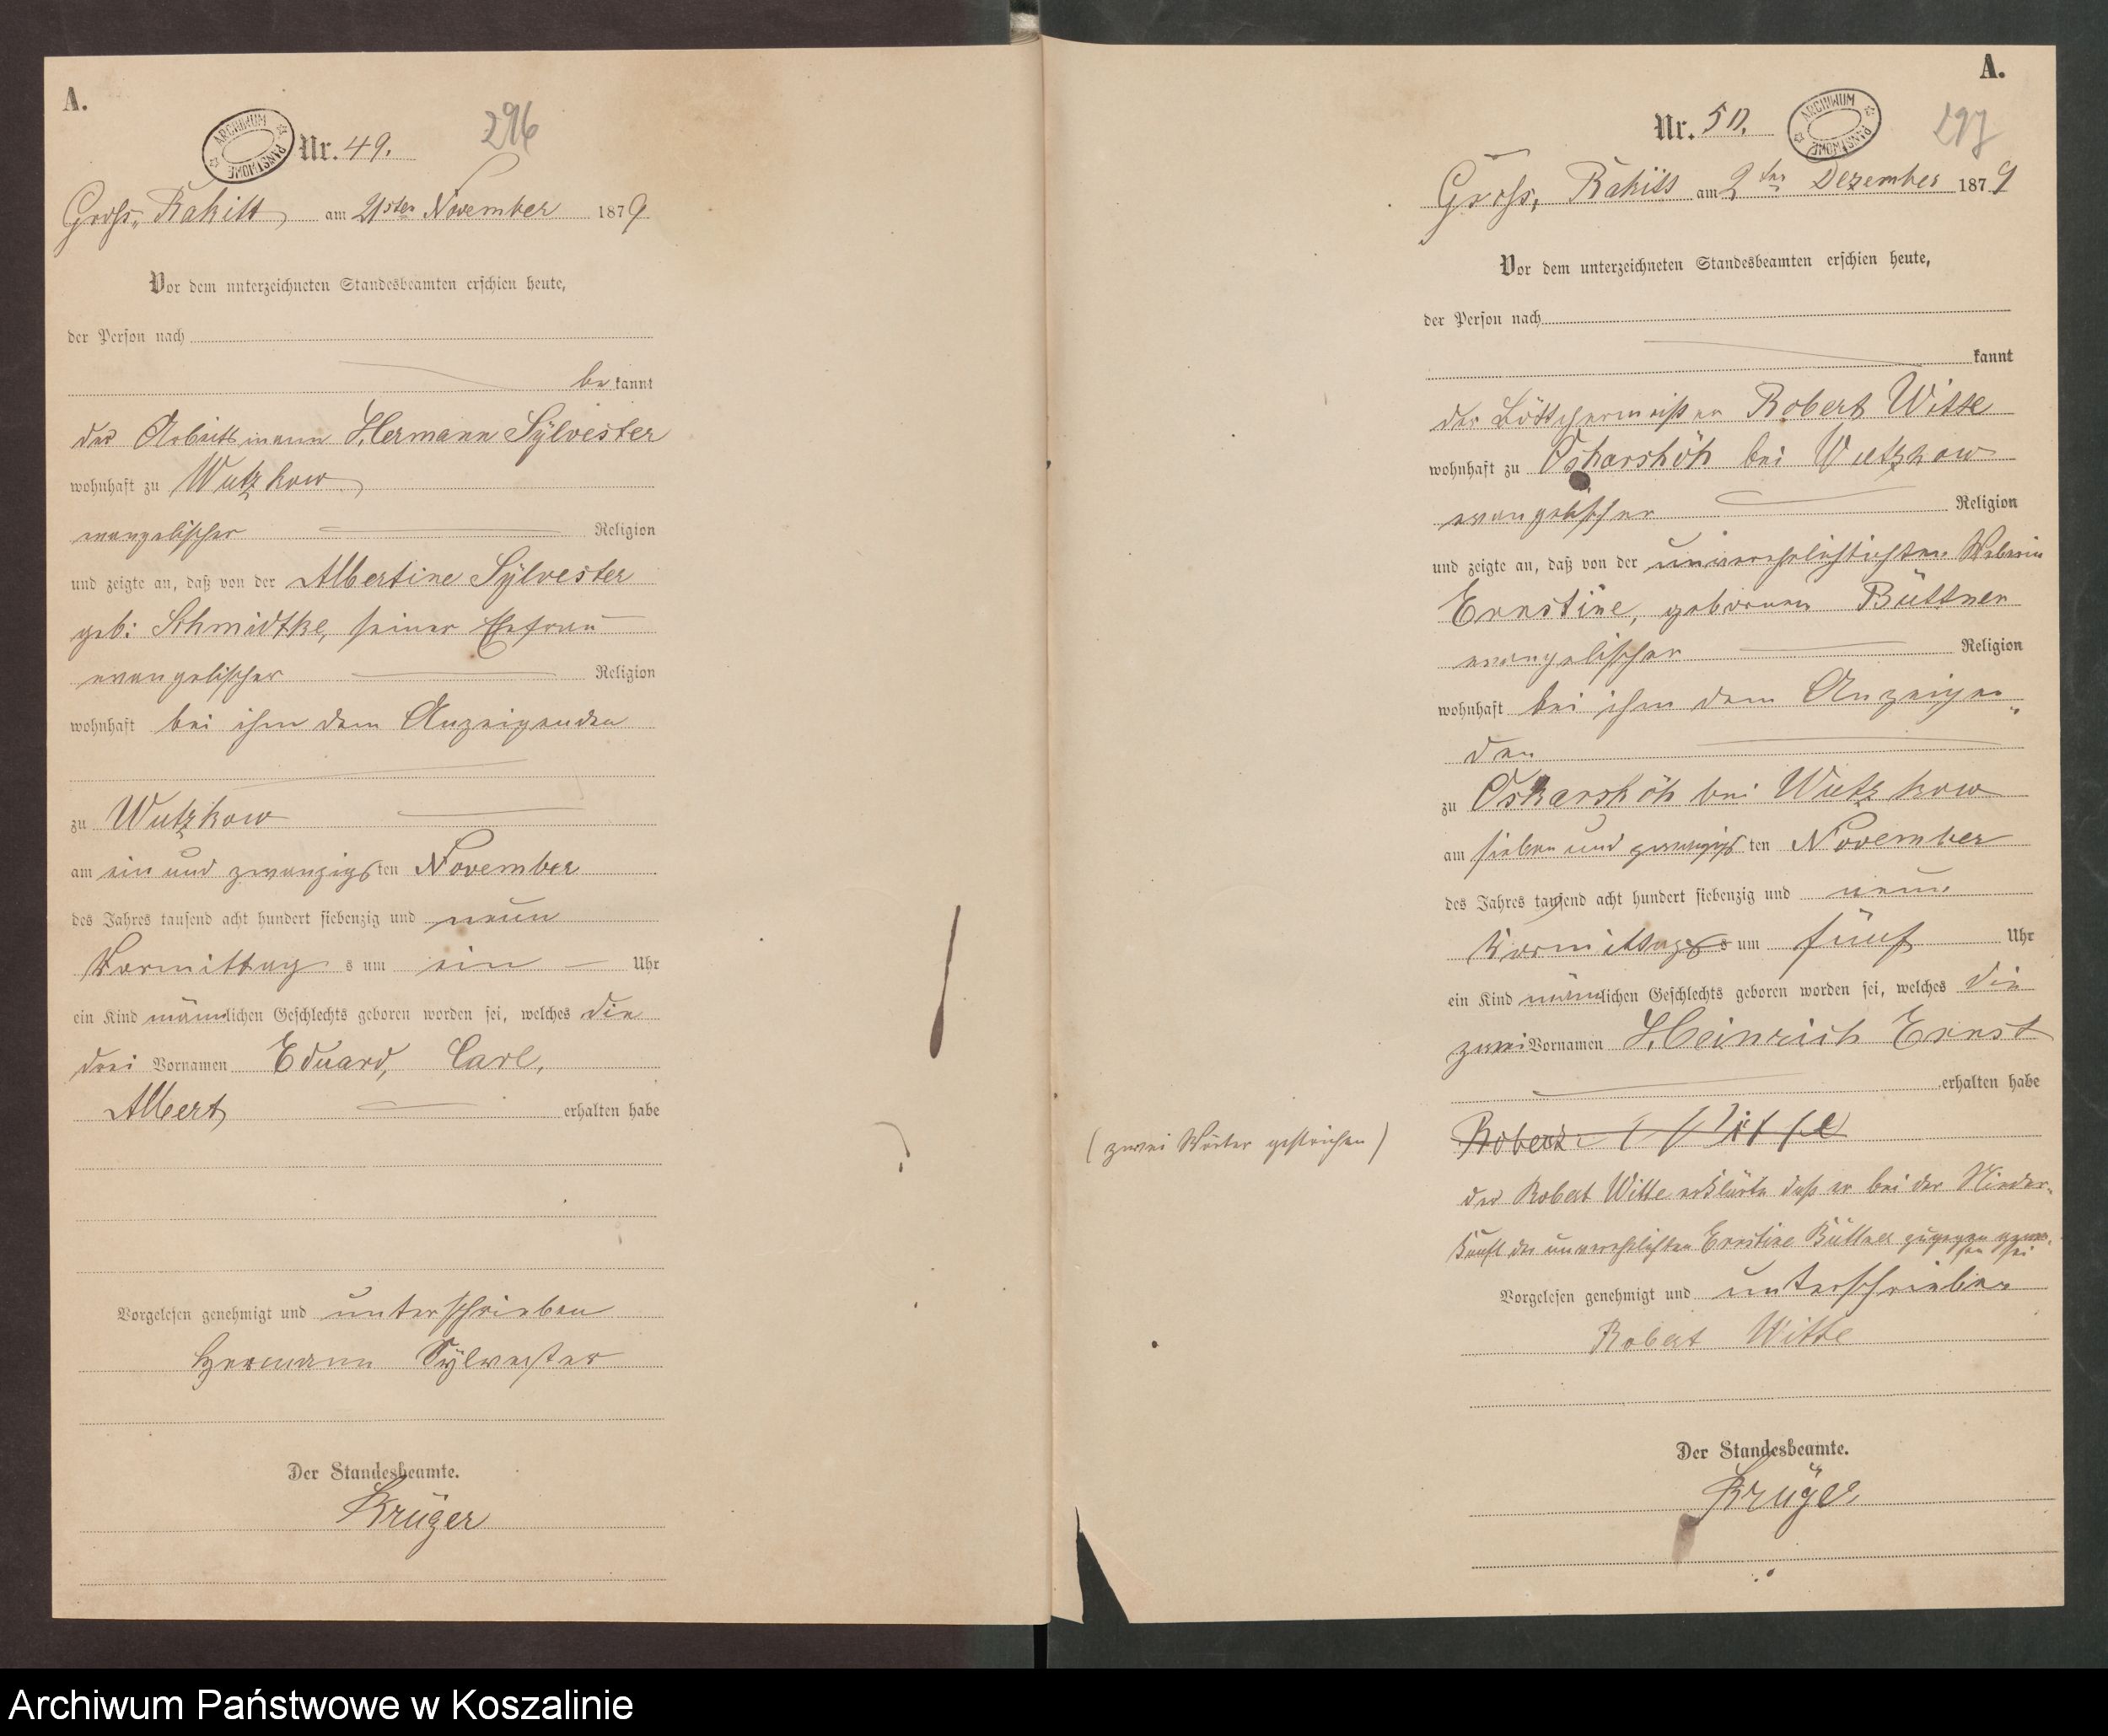 A.
ARCHIWUM PAŃSTWOWE
Nr. 49.
296
Gross-Rakitt am 21sten November 1879
Vor dem unterzeichneten Standesbeamten erschien heute,
der Person nach
bekannt
der Arbeitsmann Hermann Sylvester
wohnhaft zu Wutzkow
evangelischer Religion
und zeigte an, daß von der Albertine Sylvester
geb: Schmidtke, seiner Ehefrau
evangelischer Religion
wohnhaft bei ihm dem Anzeigenden
zu Wutzkow
am ein und zwanzigsten November
des Jahres tausend acht hundert siebenzig und neun
Vormittags um ein Uhr
ein Kind männlichen Geschlechts geboren worden sei, welches die
drei Vornamen Eduard, Carl,
Albert erhalten habe
Vorgelesen genehmigt und unterschrieben
Hermann Sylvester
Der Standesbeamte.
Krüger
A.
Nr. 50.
ARCHIWUM PAŃSTWOWE
297
Gross, Rakitt am 2ten Dezember 1879
Vor dem unterzeichneten Standesbeamten erschien heute,
der Person nach
kannt
der Böttchermeister Robert Witte
wohnhaft zu Oskarshöh bei Wutzkow
evangelischer Religion
und zeigte an, daß von der unverehelichten
Ernstine, geborenen Büttner
evangelischer Religion
wohnhaft bei ihm dem Anzeigen-
den
zu Oskarshöh bei Wutzkow
am sieben und zwanzigsten November
des Jahres tausend acht hundert siebenzig und neun
Vormittags um fünf Uhr
ein Kind männlichen Geschlechts geboren worden sei, welches die
zwei Vornamen Heinrich Ernst
erhalten habe
(zwei Wörter gestrichen)
Robert Witte
der Robert Witte erklärte daß er bei der Nieder-
kunft der unverehelichten Ernstine Büttner zugegen gewe-
sen sei
Vorgelesen genehmigt und unterschrieben
Robert Witte
Der Standesbeamte.
Krüger
Archiwum Państwowe w Koszalinie